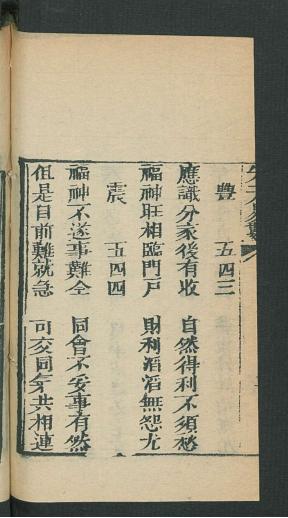 豐　五四三
應識分家後有收　自然得利不須愁
福神旺相臨門戶　財利滔滔無怨尤
震　五四四
福神不遂事難全　同會不安事有然
但是目前難就急　可交同年共相連